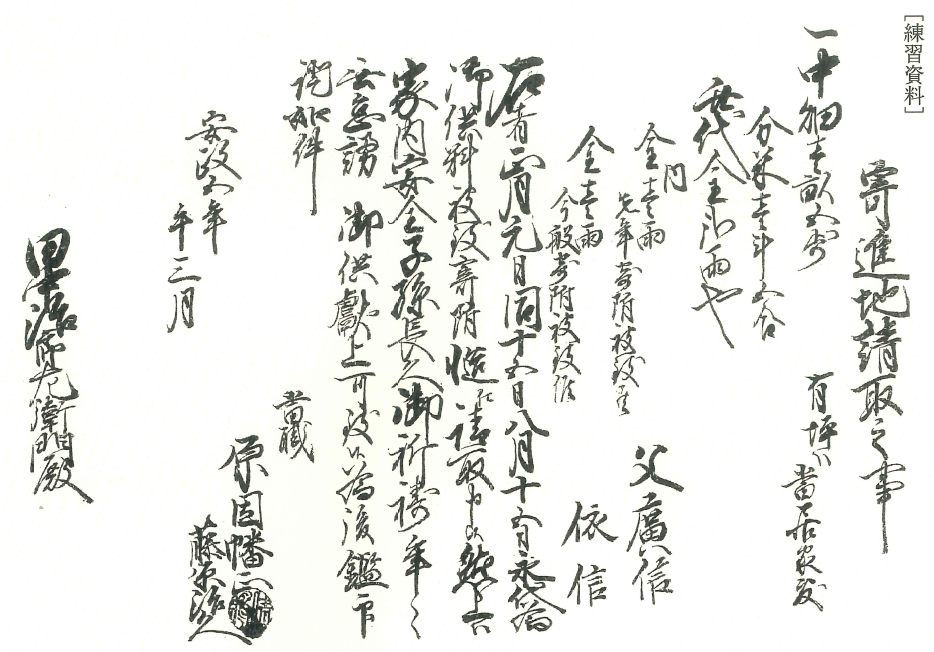 ［練習資料］
寄進地請取之事
一中畑壱畝五歩
有坪ハ
當居家敷
分米壱斗五合
此代金弐両也
内
金壱両
先年寄附被致候
父廣信
金壱両
今般寄附被致候
依信
右者正月元日同十五日八月十五日永代為
御供料被致寄附慥ニ請取申候然上者
家内安全子孫長久御祈祷年々
無怠謟御供献上可致候為後鑑一印
仍如件
當職
原因幡正
藤原
安政五年
午三月
左衛門殿